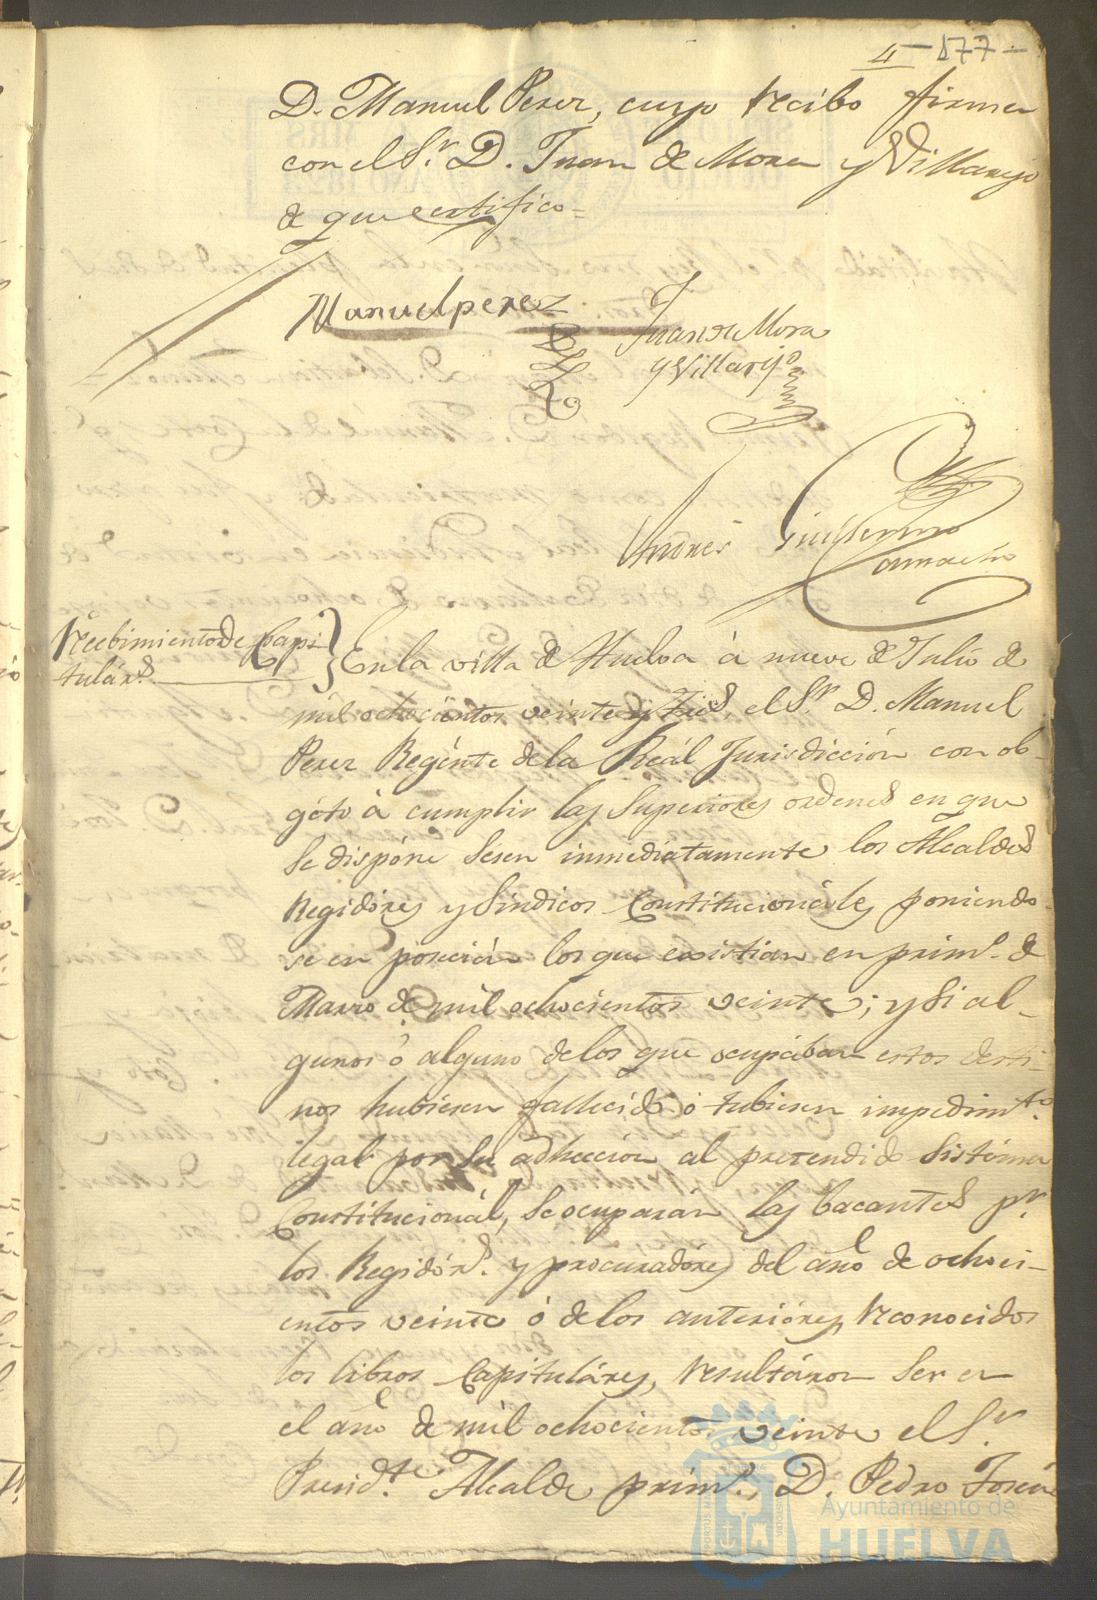 4 - 577 -
D. Manuel Perez, cuyo recibo firma
con el Sr. D. Juan de Mora y Villarejo
de que certifico =
Manuel perez
Juan de Mora
y Villarejo
Andres Guillermo
Camacho
Recibimiento de Capi
tulars.
En la villa de Huelva á nueve de Julio de
mil ochocientos veinte y tres, el Sr. D. Manuel
Perez Regénte de la Reál Jurisdicción con ob-
géto á cumplir las Superiores ordenes en que
se dispóne sesen inmediatamente los Alcaldes
Regidóres y Sindicos Constitucionáles poniendo
se en posecion los que existian en primo. de
Marzo de mil ochocientos veinte; y si al-
gunos ó alguno de los que ocupában estos desti-
nos hubiesen fallecido ó tubiesen impedimto.
legal por su adhección al pretendido Sistéma
Constitucionál, se ocuparán las bacantes pr.
los Regidórs. y procuradóres del año de ochoci-
entos veinte ó de los anterióres, reconocidos
los libros Capituláres, resultáron ser en
el año de mil ochocientos veinte el Sr.
Presidte. Alcalde primo., D. Pedro
Ayuntamiento de
HUELVA